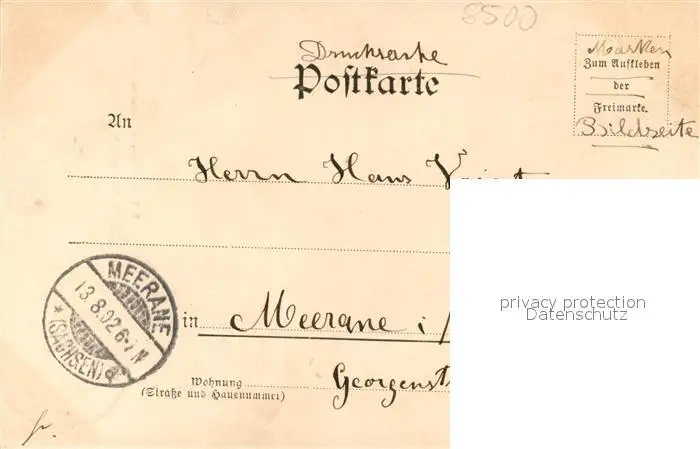 8500
Drucksache
Postkarte
Marken
Zum Aufkleben
der
Freimarke.
Bildseite
An
Herrn Hans
privacy protection
Datenschutz
MEERANE
13.8.02.6-7N
* (SACHSEN) a
in Meerane i/
Wohnung
(Straße und Hausnummer)
Georgenst